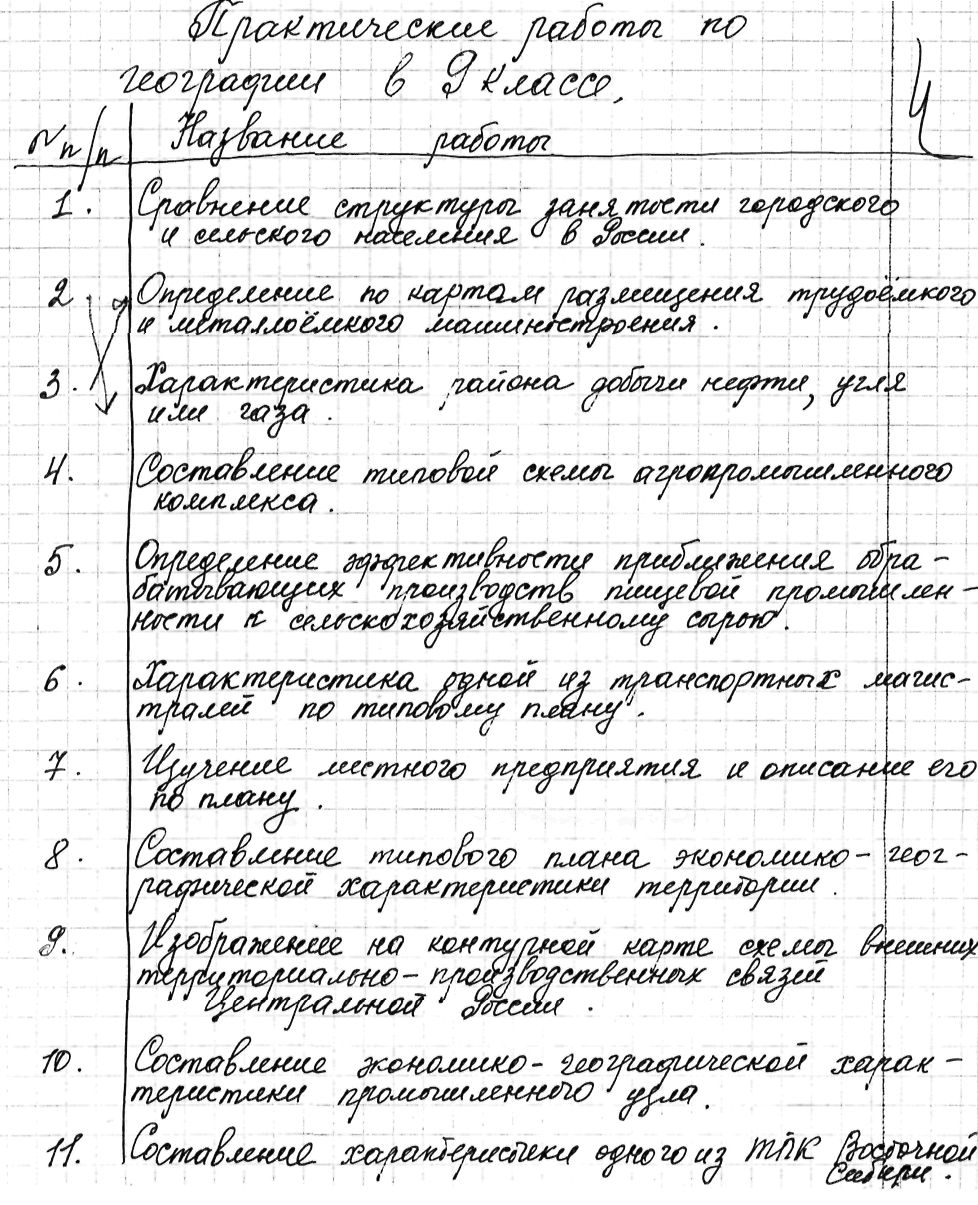 Практические работы по
географии в 9 классе.
№ п/п Название работы
1. Сравнение структуры занятости городского
и сельского населения в России.
2. Определение по картам размещения трудоёмкого
и металлоёмкого машиностроения.
3. Характеристика района добычи нефти, угля
или газа.
4. Составление типовой схемы агропромышленного
комплекса.
5. Определение эффективности приближения обра-
батывающих производств пищевой промышлен-
ности к сельскохозяйственному сырью.
6. Характеристика одной из транспортных магис-
тралей по типовому плану.
7. Изучение местного предприятия и описание его
по плану.
8. Составление типового плана экономико-геог-
рафической характеристики территории.
9. Изображение на контурной карте схемы внешних
территориально-производственных связей
Центральной России.
10. Составление экономико-географической харак-
теристики промышленного узла.
11. Составление характеристики одного из ТПК Восточной
Сибири.